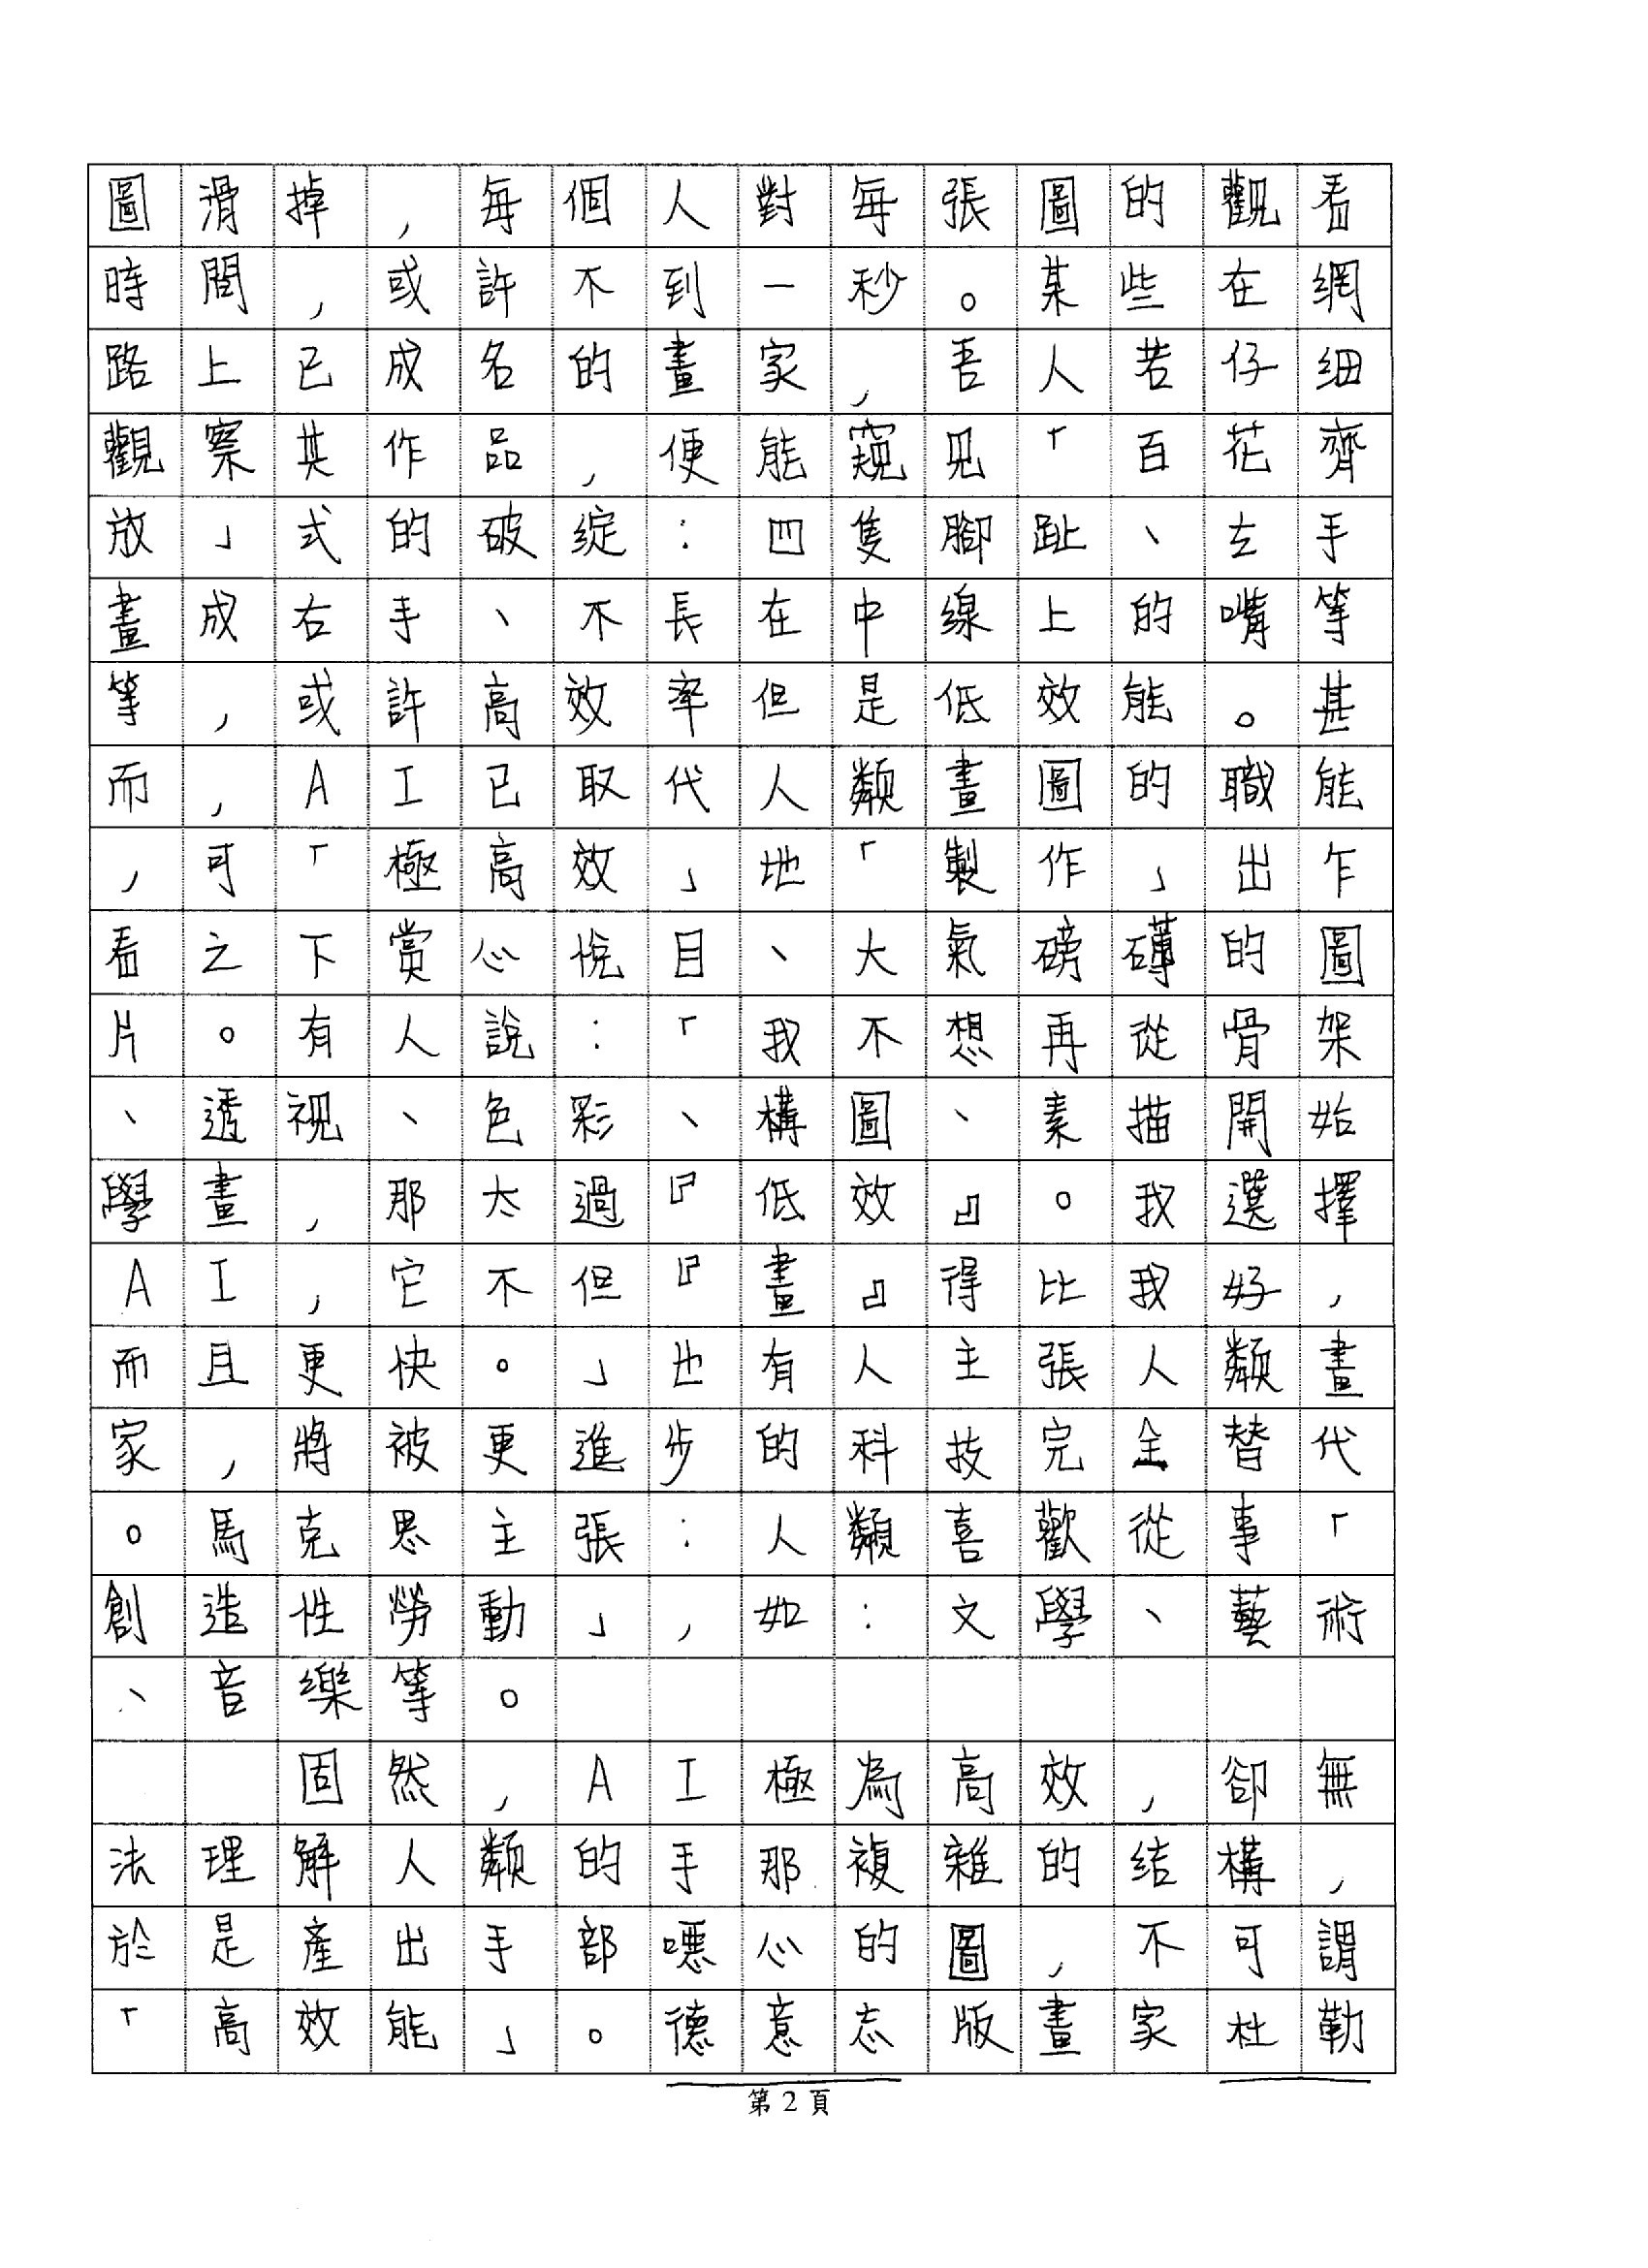 圖滑掉，每個人對每張圖的觀看
時間，或許不到一秒。某些在網
路上已成名的畫家，吾人若仔細
觀察其作品，便能窺見「百花齊
放」式的破綻：四隻腳趾、左手
畫成右手、不長在中線上的嘴等
等，或許高效率但是低效能。甚
而，AI已取代人類畫圖的職能
，可「極高效」地「製作」出乍
看之下賞心悅目、大氣磅礡的圖
片。有人說：「我不想再從骨架
、透視、色彩、構圖、素描開始
學畫，那太過『低效』。我選擇
AI，它不但『畫』得比我好，
而且更快。」也有人主張人類畫
家，將被更進步的科技完全替代
。馬克思主張：人類喜歡從事「
創造性勞動」，如：文學、藝術
、音樂等。
固然，AI極為高效，卻無
法理解人類的手那複雜的结構，
於是產出手部噁心的圖，不可謂
「高效能」。德意志版畫家杜勒
第2頁